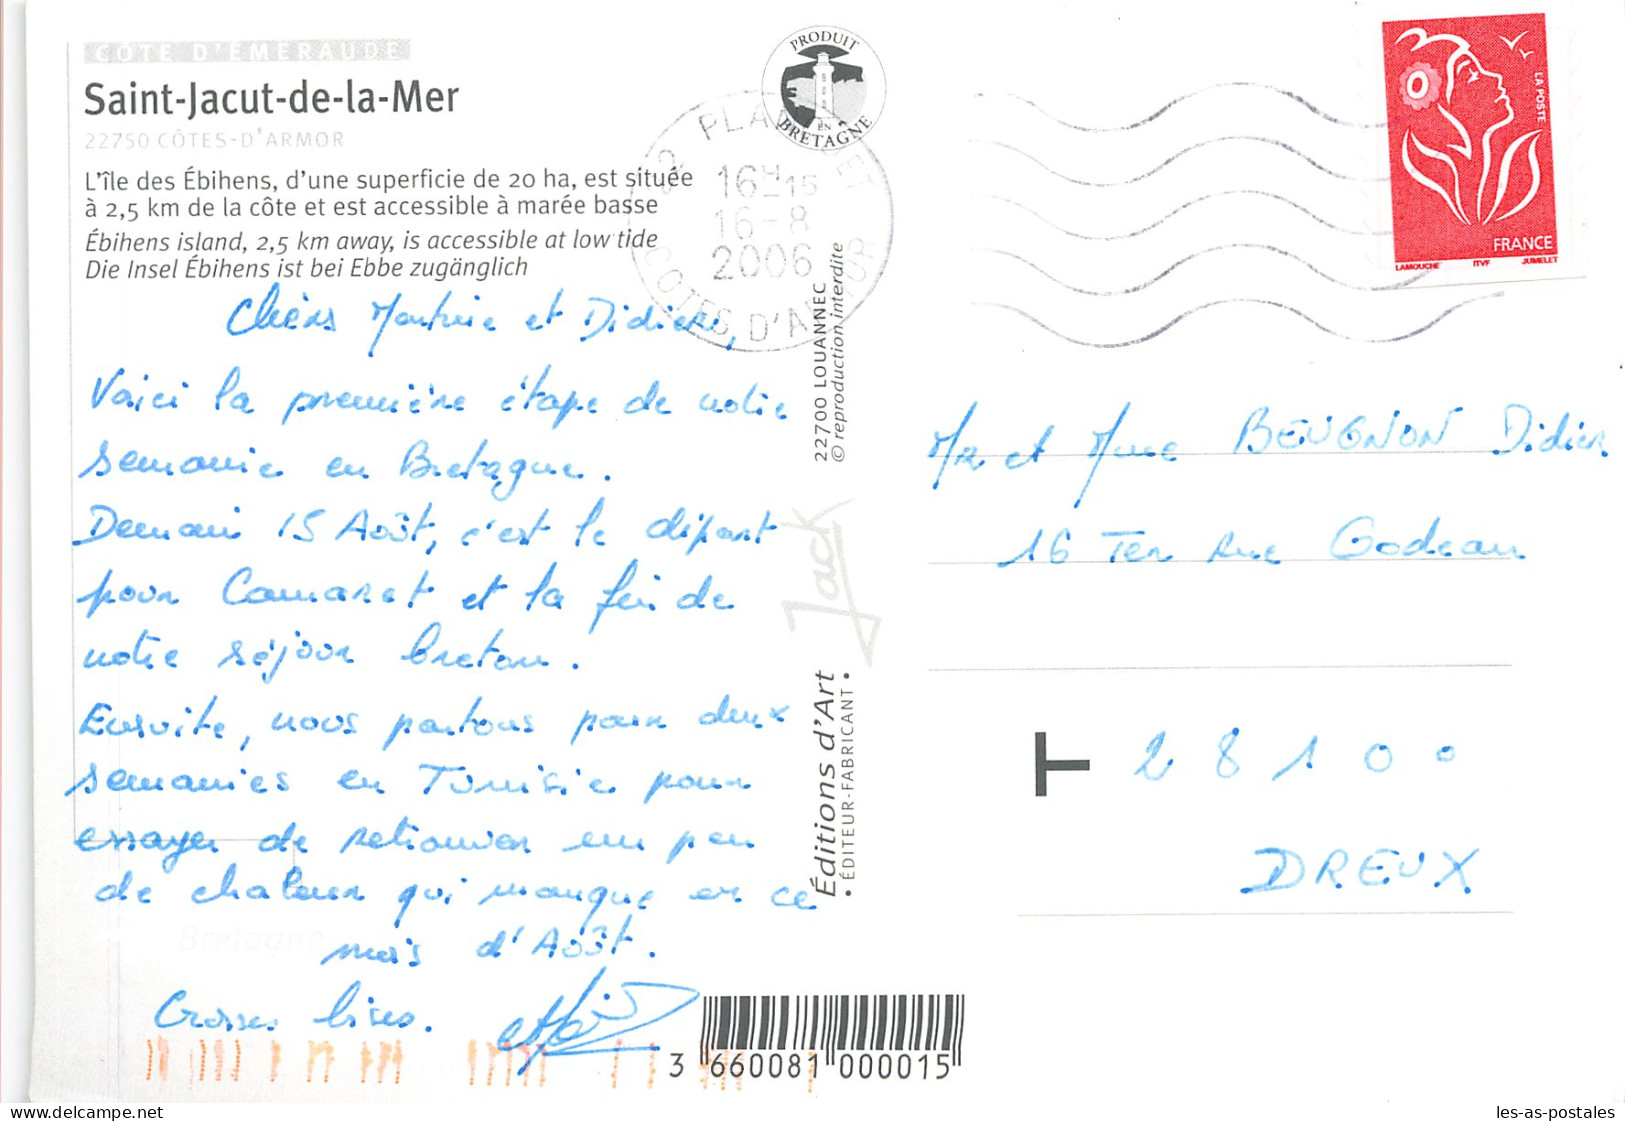 CÔTE D'ÉMERAUDE
Saint-Jacut-de-la-Mer
22750 CÔTES-D'ARMOR
L'île des Ébihens, d'une superficie de 20 ha, est située
à 2,5 km de la côte et est accessible à marée basse
Ébihens island, 2,5 km away, is accessible at low tide
Die Insel Ébihens ist bei Ebbe zugänglich
Chers et Didier,
Voici la première étape de notre
semaine en Bretagne.
Demain 15 Août, c'est le départ
pour Camaret et la fin de
notre séjour breton.
Ensuite, nous partons pour deux
semaines en Tunisie pour
essayer de retrouver un peu
de chaleur qui manque en ce
mois d'Août.
Grosses bises.
Bretagne
PRODUIT
EN
BRETAGNE
16H15
16-8
2006
COTES D'ARMOR
22700 LOUANNEC
© reproduction interdite
Jack
Éditions d'Art
• ÉDITEUR-FABRICANT •
3 660081 000015
LA POSTE
FRANCE
LAMOUCHE ITVF JUMELET
Mr et Mme BEUGNON Didier
16 Ter Rue Godeau
T 28100
DREUX
delcampe.net
les-as-postales